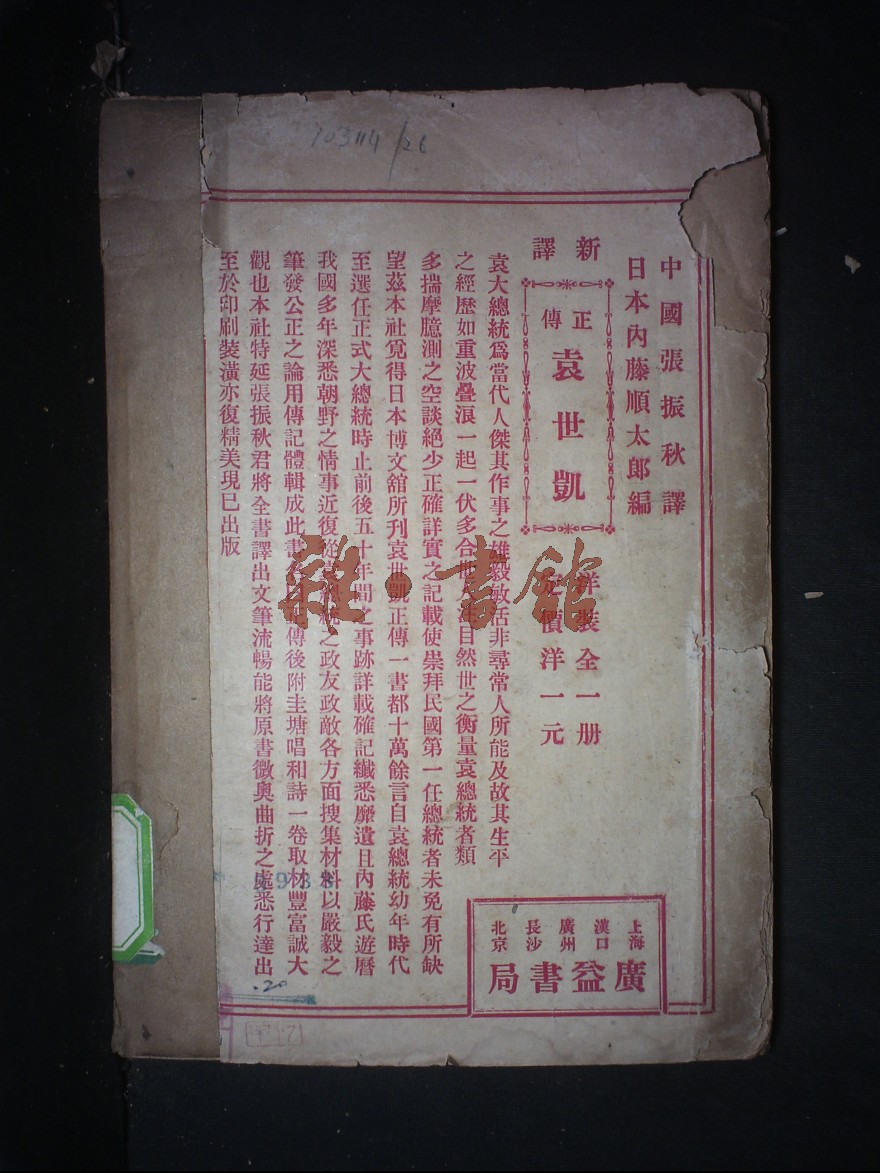 703114/26
中國張振秋譯
日本內藤順太郎編
新譯
正傳
袁世凱
洋裝全一册
定價洋一元
袁大總統爲當代人傑其作事之雄毅敏活非尋常人所能及故其生平
之經歷如重波疊浪一起一伏多合
自然世之衡量袁總統者類
多揣摩臆測之空談絕少正確詳實之記載使崇拜民國第一任總統者未免有所缺
望茲本社覓得日本博文舘所刊袁世凱正傳一書都十萬餘言自袁總統幼年時代
至選任正式大總統時止前後五十年間之事跡詳載確記纖悉靡遺且內藤氏遊曆
我國多年深悉朝野之情事近復從
之政友政敵各方面搜集材料以嚴毅之
筆發公正之論用傳記體輯成此書
傳後附圭塘唱和詩一卷取材豐富誠大
觀也本社特延張振秋君將全書譯出文筆流暢能將原書微奧曲折之處悉行達出
至於印刷裝潢亦復精美現已出版
上海
漢口
廣州
長沙
北京
廣益書局
雜·書館
.20